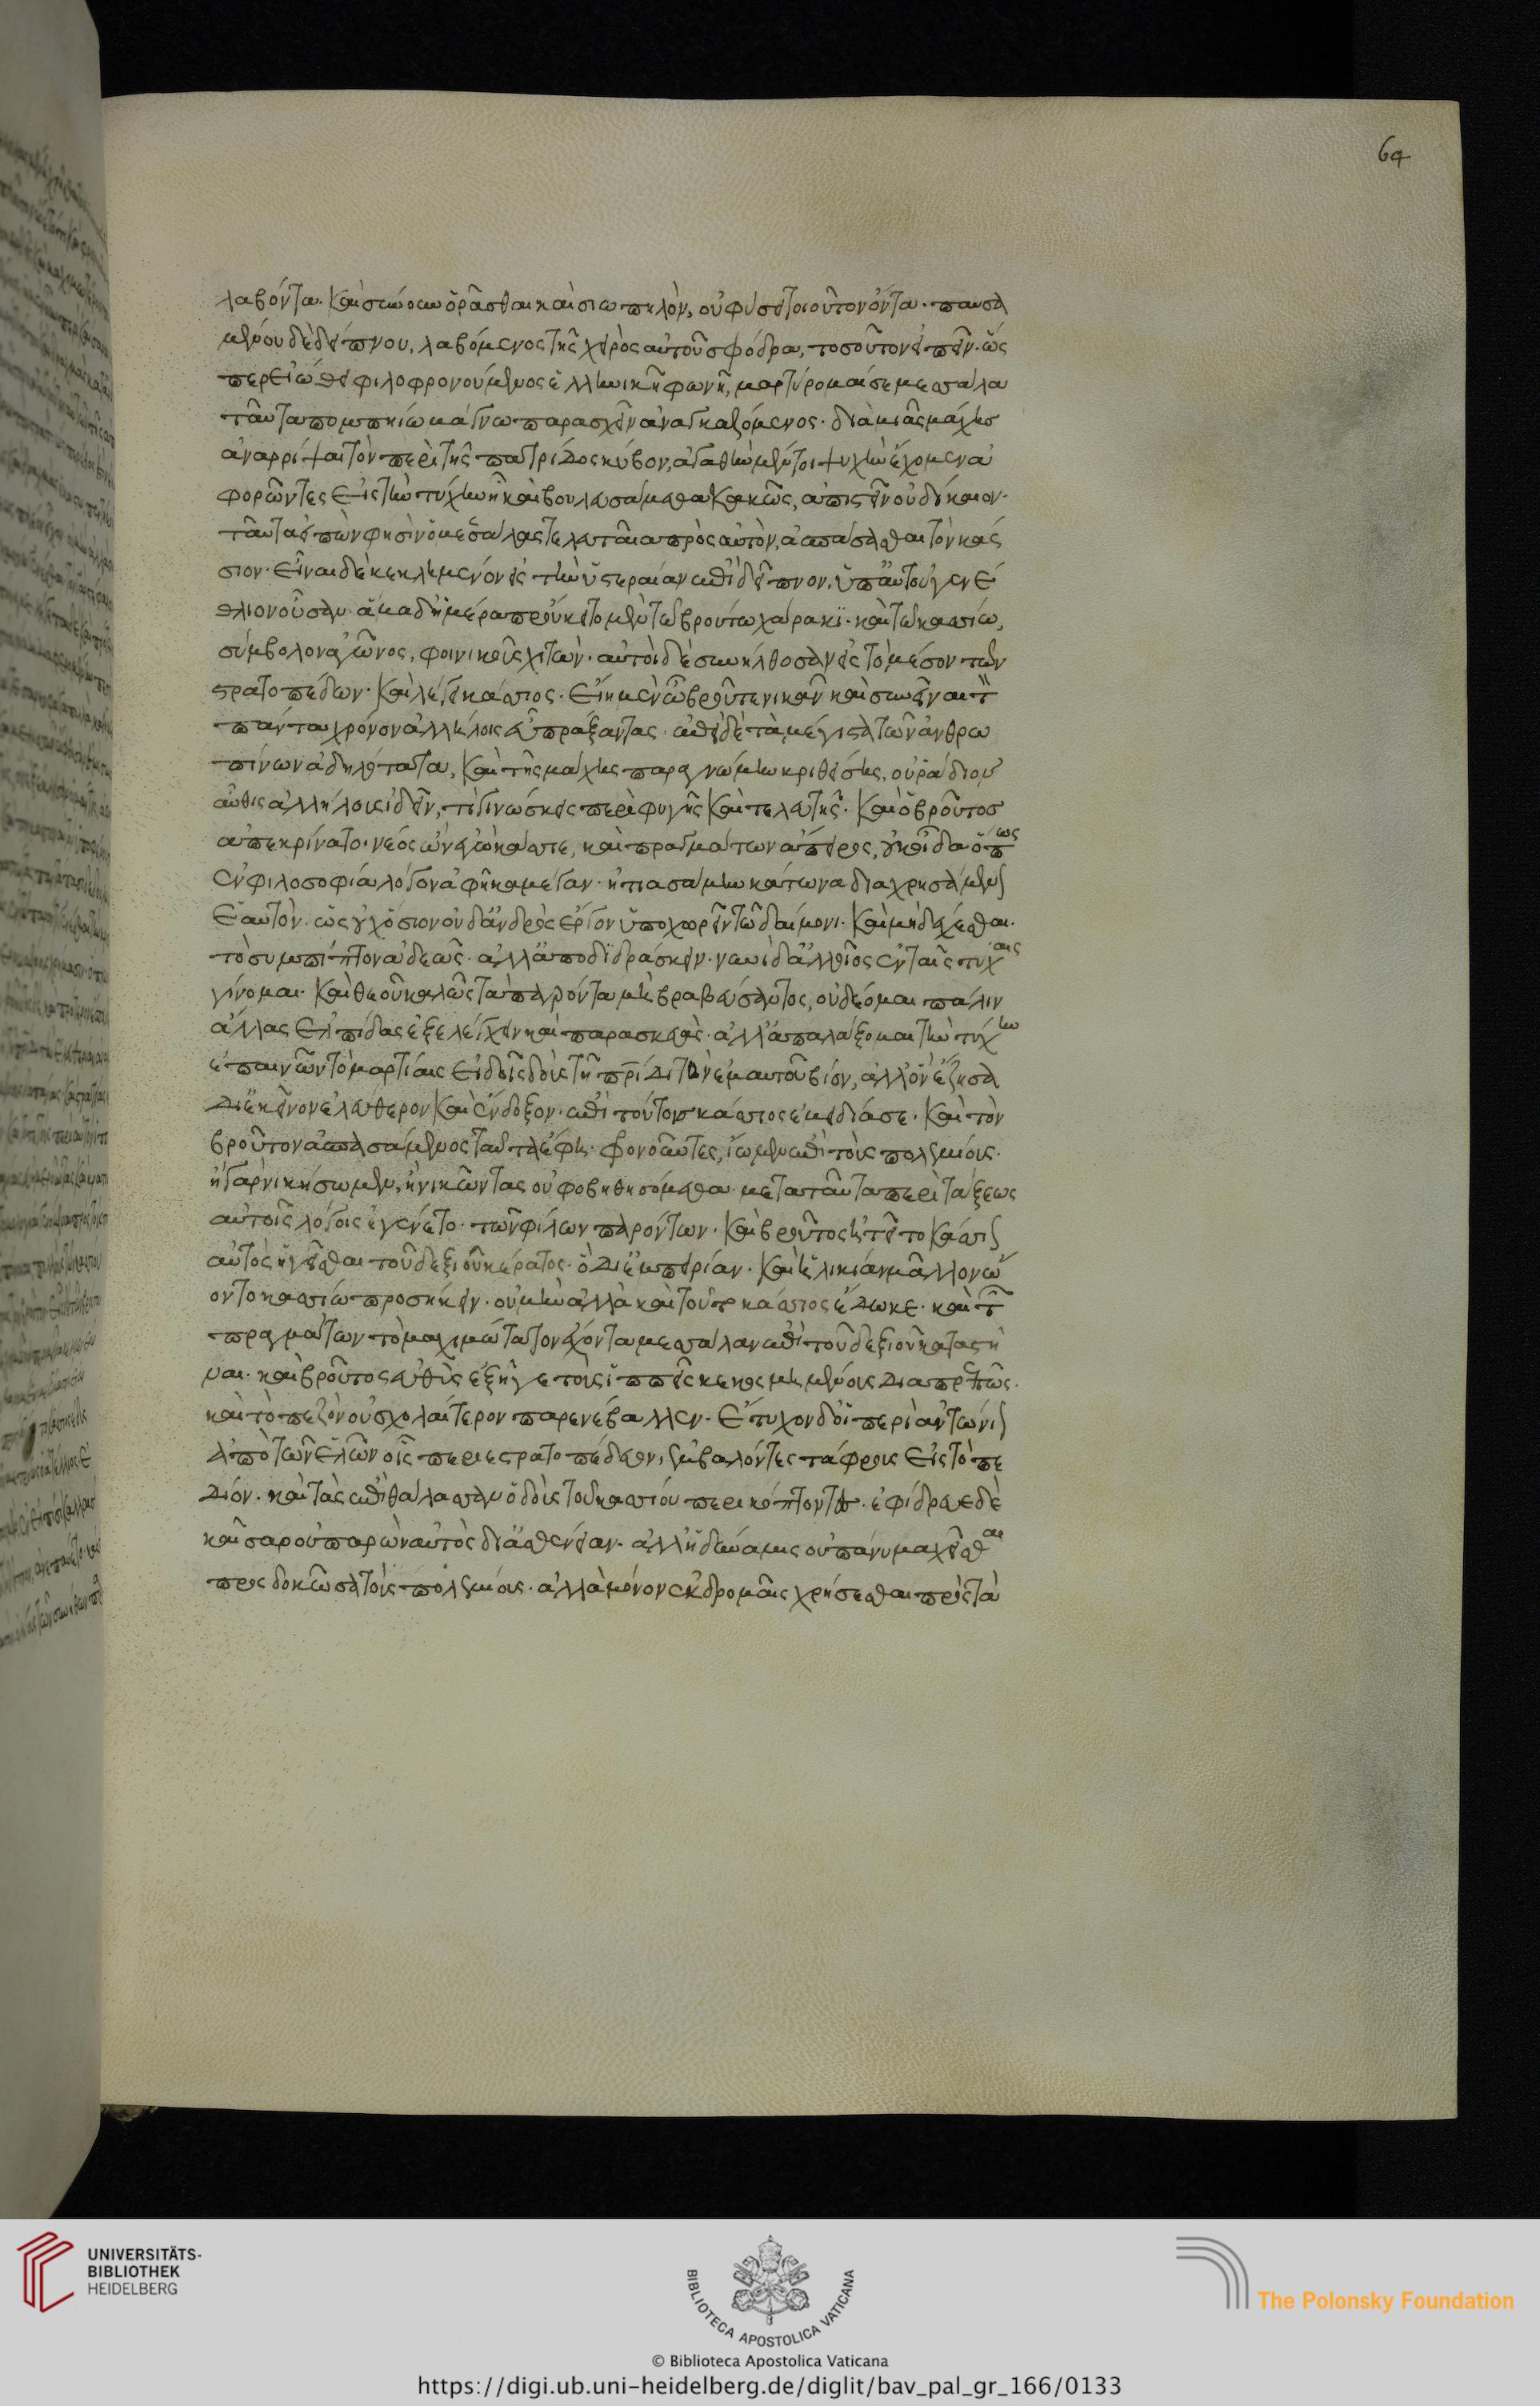 64
λαβόντα. καὶ σύνουν ὁρᾶσθαι καὶ σιωπηλὸν, οὐ φύσει τοιοῦτον ὄντα. παυσα
μένου δὲ δείπνου, λαβόμενος τῆς χειρὸς αὐτοῦ σφόδρα, τοσοῦτον εἰπεῖν. ὥς
περ εἰώθει φιλοφρονούμενος ἑλληνικῆ φωνῆ, μαρτύρομαί σε μεσσάλα
ταῦτα πομπηίω μάγνω παρασχεῖν ἀναγκαζόμενος. διὰ μιᾶς μάχης
ἀναρρίψαι τὸν περὶ τῆς πατρίδος κύβον, ἀγαθὴν μέντοι ψυχὴν ἔχομεν ἀ
φορῶντες εἰς τὴν τύχην ἧ κἂν βουλευσώμεθα κακῶς, ἀπιστεῖν οὐ δίκαιον.
ταῦτα εἰπὼν φησὶν ὁ μεσάλας τελευταῖα πρὸς αὐτὸν, ἀσπάσασθαι τὸν κάσ
σιον. εἶναι δὲ κεκλημένον εἰς τὴν ὑστεραίαν ἐπὶ δεῖπνον, ὑπ' αὐτοῦ γενέ
θλιον οὖσαν. ἅμα δ' ἡμέρα προὔκειτο μὲν τῶ βρούτου χάρακι. καὶ τῶ κασσίου,
σύμβολον ἀγῶνος, φοινικοῦς χιτών. αὐτοὶ δὲ συνῆλθοσαν εἰς τὸ μέσον τῶν
στρατοπέδων. καὶ λέγει κάσσιος. εἴη μὲν ὦ βροῦτε νικᾶν καὶ συνεῖναι τ
πάντα χρόνον ἀλλήλοις εὖ πράξαντας. ἐπεὶ δὲ τὰ μέγιστα τῶν ἀνθρω
πίνων ἀδηλότατα, καὶ τῆς μάχης παρὰ γνώμην κριθείσης, οὐ ῥάδιον
αὖθις ἀλλήλους ἰδεῖν, τί γινώσκεις περὶ φυγῆς καὶ τελευτῆς. καὶ ὁ βροῦτος
ἀπεκρίνατο. νέος ὢν ἐγὼ κάσσιε, καὶ πραγμάτων ἄπειρος, οὐκ οἶδα ὅπως
ἐν φιλοσοφία λόγον ἀφῆκα μέγαν. ἠτιασάμην κάτωνα διαχρησάμενον
ἑαυτὸν. ὡς οὐχ ὅσιον οὐδ' ἀνδρὸς ἔργον ὑποχωρεῖν τῶ δαίμονι. καὶ μὴ δέχεσθαι.
τὸ συμπίπτον ἀδεῶς. ἀλλ' ἀποδιδράσκειν. νυνὶ δ' ἀλλοῖος ἐν ταῖς τύχαις
γίνομαι. καὶ θεοῦ καλῶς τὰ παρόντα μὴ βραβεύσαντος, οὐ δέομαι πάλιν
ἄλλας ἐλπίδας ἐξελέγχειν καὶ παρασκευὰς. ἀλλ' ἀπαλάξομαι τὴν τύχην
ἐπαινῶν τὸ μαρτίαις εἰδοῖς δοὺς τῆ πρίδι τὸν ἐμαυτοῦ βίον, ἄλλον ἔζησα
δι' ἐκεῖνον ἐλεύθερον καὶ ἔνδοξον. ἐπὶ τούτοις κάσσιος ἐμειδίασε. καὶ τὸν
βροῦτον ἀσπασάμενος ταῦτ' ἔφη. φρονοῦντες, ἴωμεν ἐπὶ τοὺς πολεμίους.
ἢ γὰρ νικήσωμεν, ἢ νικῶντας οὐ φοβηθησόμεθα. μετὰ ταῦτα περὶ τάξεως
αὐτοῖς λόγος ἐγένετο. τῶν φίλων παρόντων. καὶ βροῦτος ἠτεῖτο κάσσιον
αὐτὸς ἡγεῖσθαι τοῦ δεξιοῦ κέρατος. ὃ δι' ἐμπειρίαν. καὶ ἡλικίαν μᾶλλον ὤ
οντο κασσίω προσήκειν. οὐ μὴν ἀλλὰ καὶ τοῦτο κάσσιος ἔδωκε. καὶ τῶν
πραγμάτων τὸ μαχιμώτατον ἔχοντα μεσσάλαν ἐπὶ τοῦ δεξιοῦ κατέστη
σαι. καὶ βροῦτος εὐθὺς ἐξῆγε τοὺς ἱππεῖς κεκοσμημένους διαπρεπῶς.
καὶ τὸ πεζὸν οὐ σχολαίτερον παρενέβαλλεν. ἔτυχον δ' οἱ περὶ ἀντώνιον
ἀπὸ τῶν ἑλῶν οἷς περιεστρατοπέδευον, ἐμβαλόντες τάφρους εἰς τὸ πε
δίον. καὶ τὰς ἐπὶ θάλασσαν ὁδοὺς τοῦ κασσίου περικόπτοντες. ἐφήδρευε δὲ
καῖσαρ οὐ παρὼν αὐτὸς δι' ἀσθένειαν. ἀλλ' ἡ δύναμις οὐ πάνυ μαχεῖσθαι
προσδοκῶσα τοὺς πολεμίους. ἀλλὰ μόνον ἐκδρομαῖς χρήσεσθαι πρὸς τὰ
UNIVERSITÄTS-
BIBLIOTHEK
HEIDELBERG
BIBLIOTECA APOSTOLICA VATICANA
The Polonsky Foundation
© Biblioteca Apostolica Vaticana
https://digi.ub.uni-heidelberg.de/diglit/bav_pal_gr_166/0133